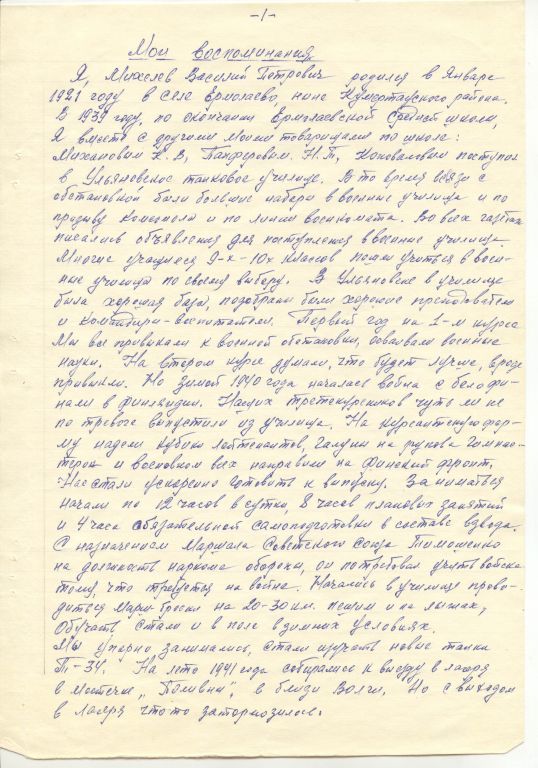 -1-
Мои воспоминания.
Я, Михелев Василий Петрович родился в Январе
1921 году в селе Ермолаево, ныне Кумертауского района.
В 1939 году, по окончании Ермолаевской средней школы,
Я вместе с другими моими товарищами по школе:
Михановым К. В, Панферовым. Н. П, Коноваловым поступил
в Ульяновское танковое училище. В то время в связи с
обстановкой были большие наборы в военные училища и по
призыву комсомола и по линии военкомата. Во всех газетах
писались объявления для поступления в военные училища.
Многие учащиеся 9-х-10х классов пошли учиться в воен-
ные училища по своему выбору. В Ульяновске в училище
была хорошая база, подобраны были хорошие преподаватели
и командиры-воспитатели. Первый год на 1-м курсе
Мы все привыкали к военной обстановки, осваивали военные
науки. На втором курсе думали, что будет лучше, вроде
привыкли. Но зимой 1940 года началась война с белофи-
нами в Финляндии. Наших третекурсников чуть ли не
по тревоге выпустили из училища. На курсантскую фор-
му надели кубики лейтенантов, галуны на рукава гимнас-
терок и восновном всех направили на Финский фронт.
Нас стали ускоренно готовить к выпуску. Заниматься
начали по 12 часов в сутки, 8 часов плановых занятий
и 4 часа обязательной самоподготовки в составе взвода.
С назначением Маршала Советского Союза Тимошенко
на должность наркома обороны, он потребовал учить войска
тому, что требуется на войне. Начались в училище прово-
диться Марш-броски на 20-30 км. пешим и на лыжах,
Обучать стали и в поле в зимних условиях.
Мы упорно занимались, стали изучать новые танки
Т-34. На лето 1941 года собирались к выезду в лагеря
в местечке "Поливны", в близи Волги. Но с выходом
в лагеря что то затормозилось.